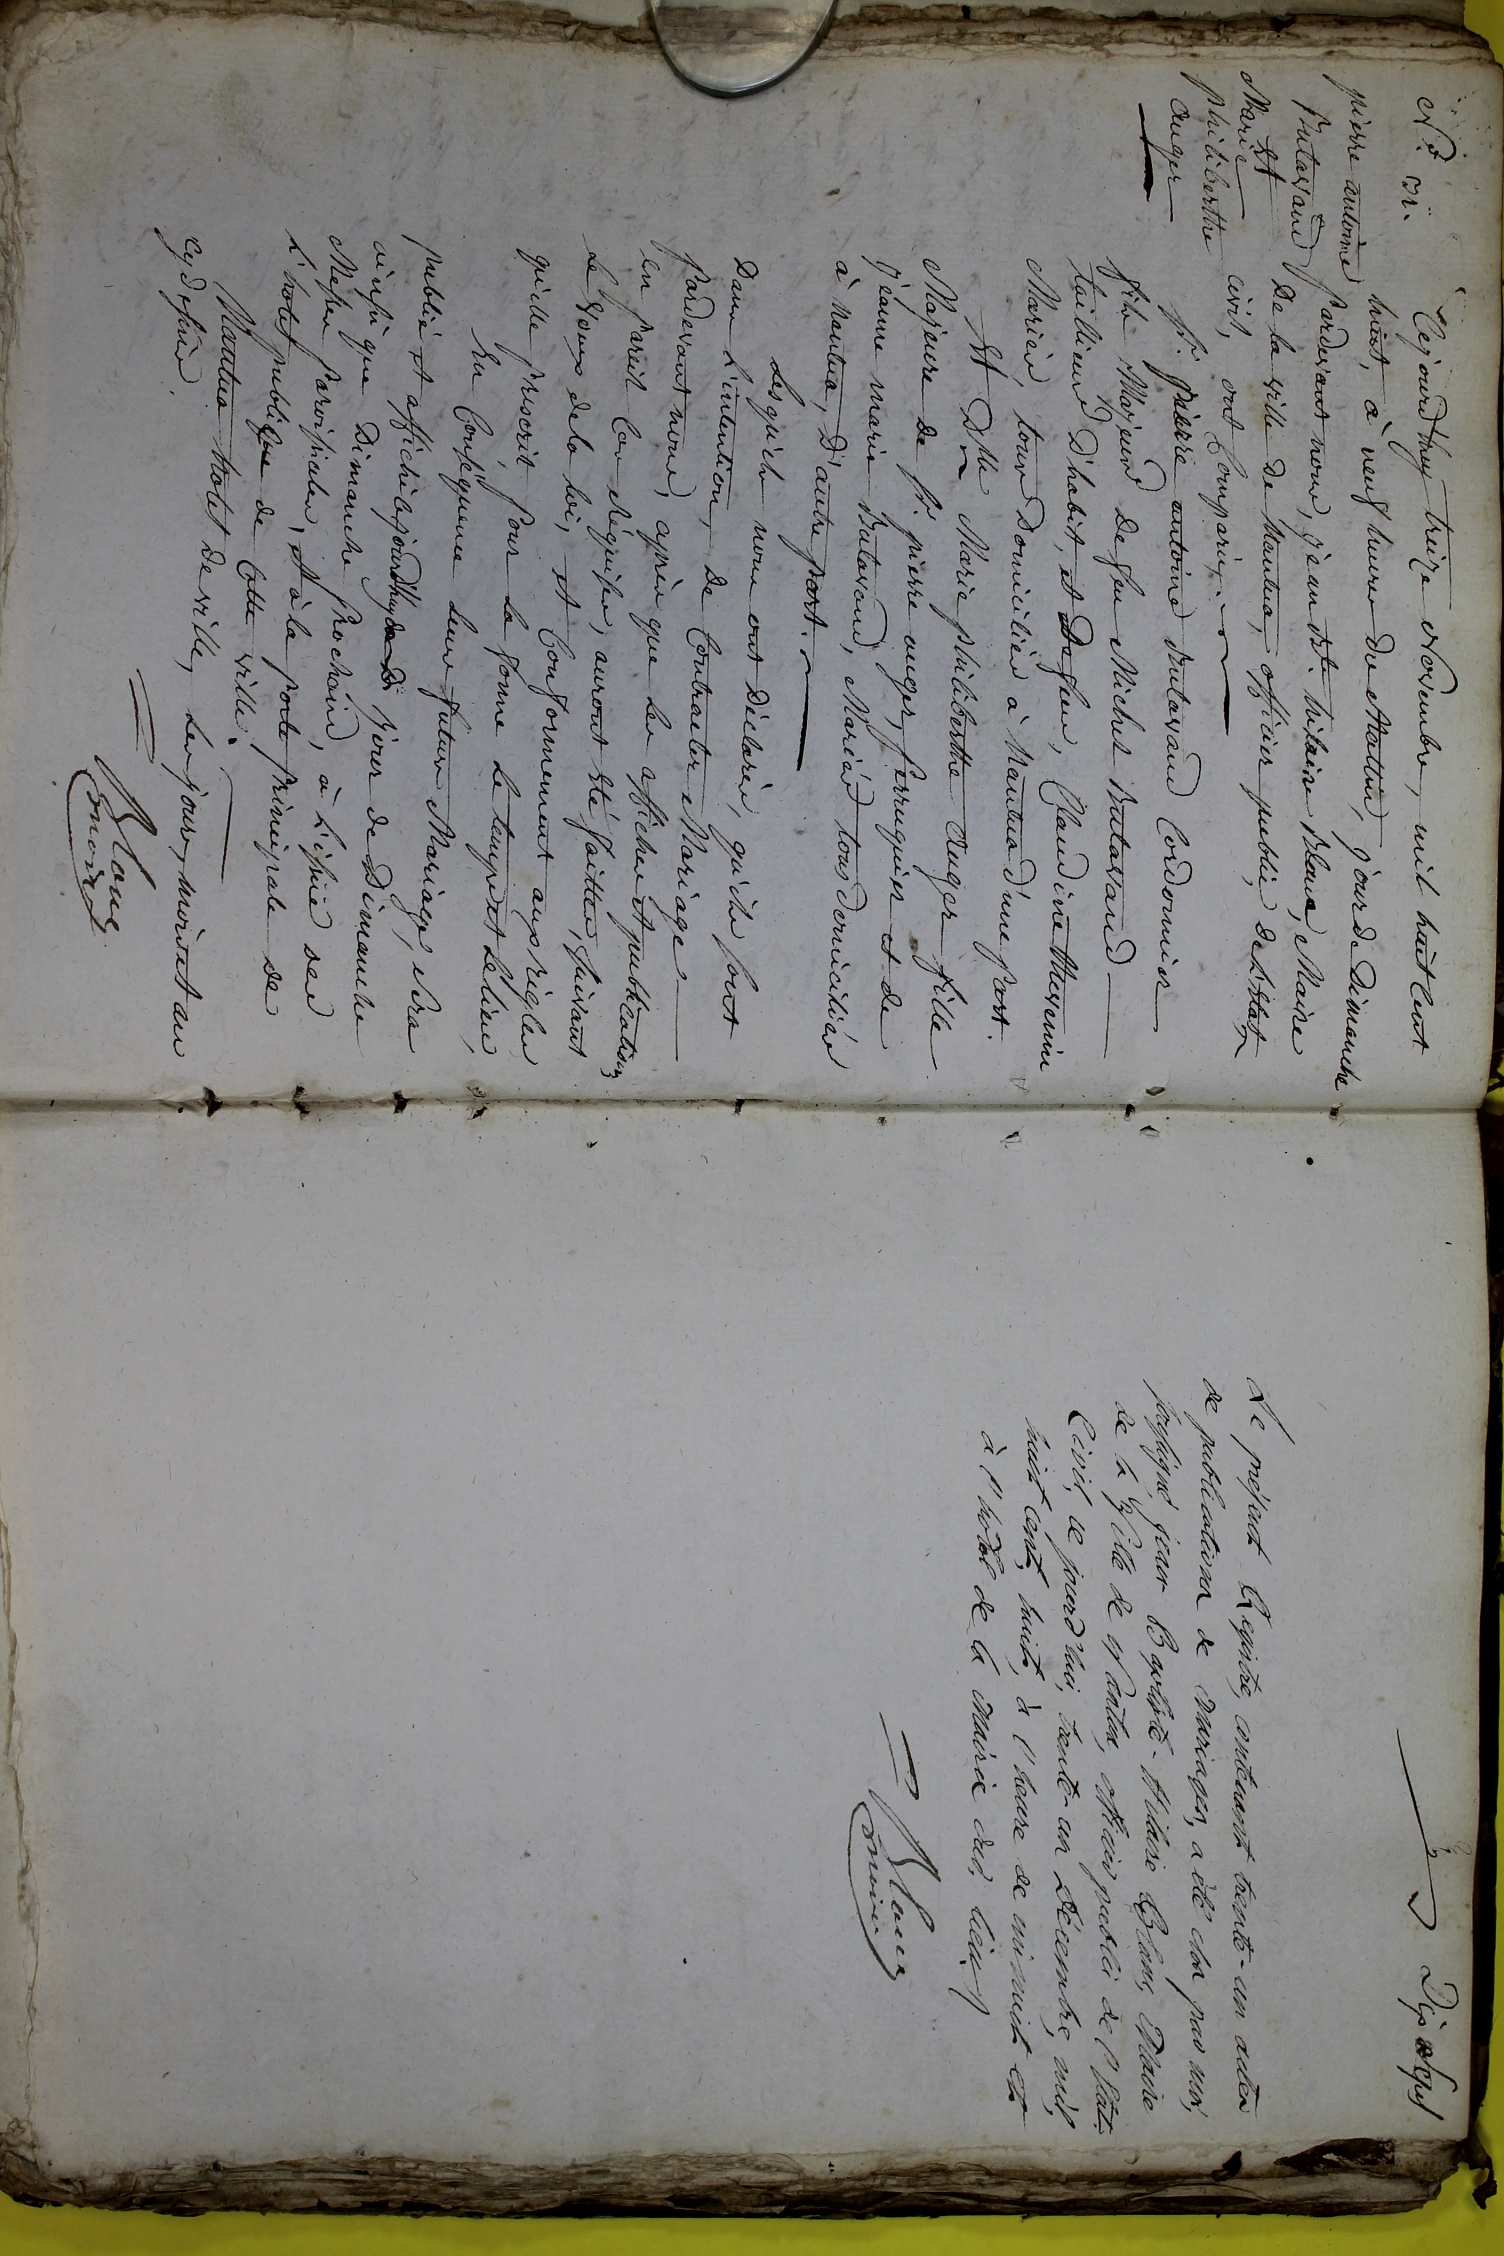 N.º 31.
pierre antoine
Butavand
Et
Marie
philiberthe
auger
Cejourd'huy treize Novembre, mil huit Cent
huit, à neuf heures du Mattin, jour de Dimanche
pardevant nous, jean Bte. hilaire Blanc, Maire
De la ville de Nantua, officier public de L'Etat
civil, ont Comparus.
Sr. Pierre antoine Butavand Cordonnier
fils Majeur De feu Michel Butavand
tailleur D'habit, et De feu, Claudine thevenin
Mariés, tous Domiciliés à Nantua d'une part.
Et Dlle Marie philiberthe Auger fille
Majeure de Sr. pierre auger, perruquier et de
jeanne marie Butavand, Mariés tous domiciliés
à Nantua, D'autre part.
Lesquels nous ont Déclarés, qu'ils sont
Dans L'intention, de Contracter Mariage
pardevant nous, après que les affiches et publications
en pareil Cas Réquises, auront été faittes, suivant
Le Voeux de la loi, et Conformement aux règles
qu'elle prescrit, pour la forme Le temps et Le lieu,
En Conséquence Leur futur Mariage, sera
publié et affiché Cejourd'huy jour de Dimanche
ainsi que Dimanche Prochain, à L'issue des
Messes paroissiales, et à la porte principale de
L'hotel publique de Cette ville.
Nattua hotel de ville, Les jour, mois et an
Cy dessus.
Blanc
maire
Le présent Registre, contenant trente-un actes
de publications de mariages, a été clos par nous,
soussigné, jean Baptiste-Hilaire Blanc, Maire
de la Ville de Nantua, officier public de l'état
Civil, ce jourd'hui, trente-un Décembre, mil
huit cent, huit, à l'heure de minuit et
à l'hôtel de la Mairie dud. lieu
Blanc
maire